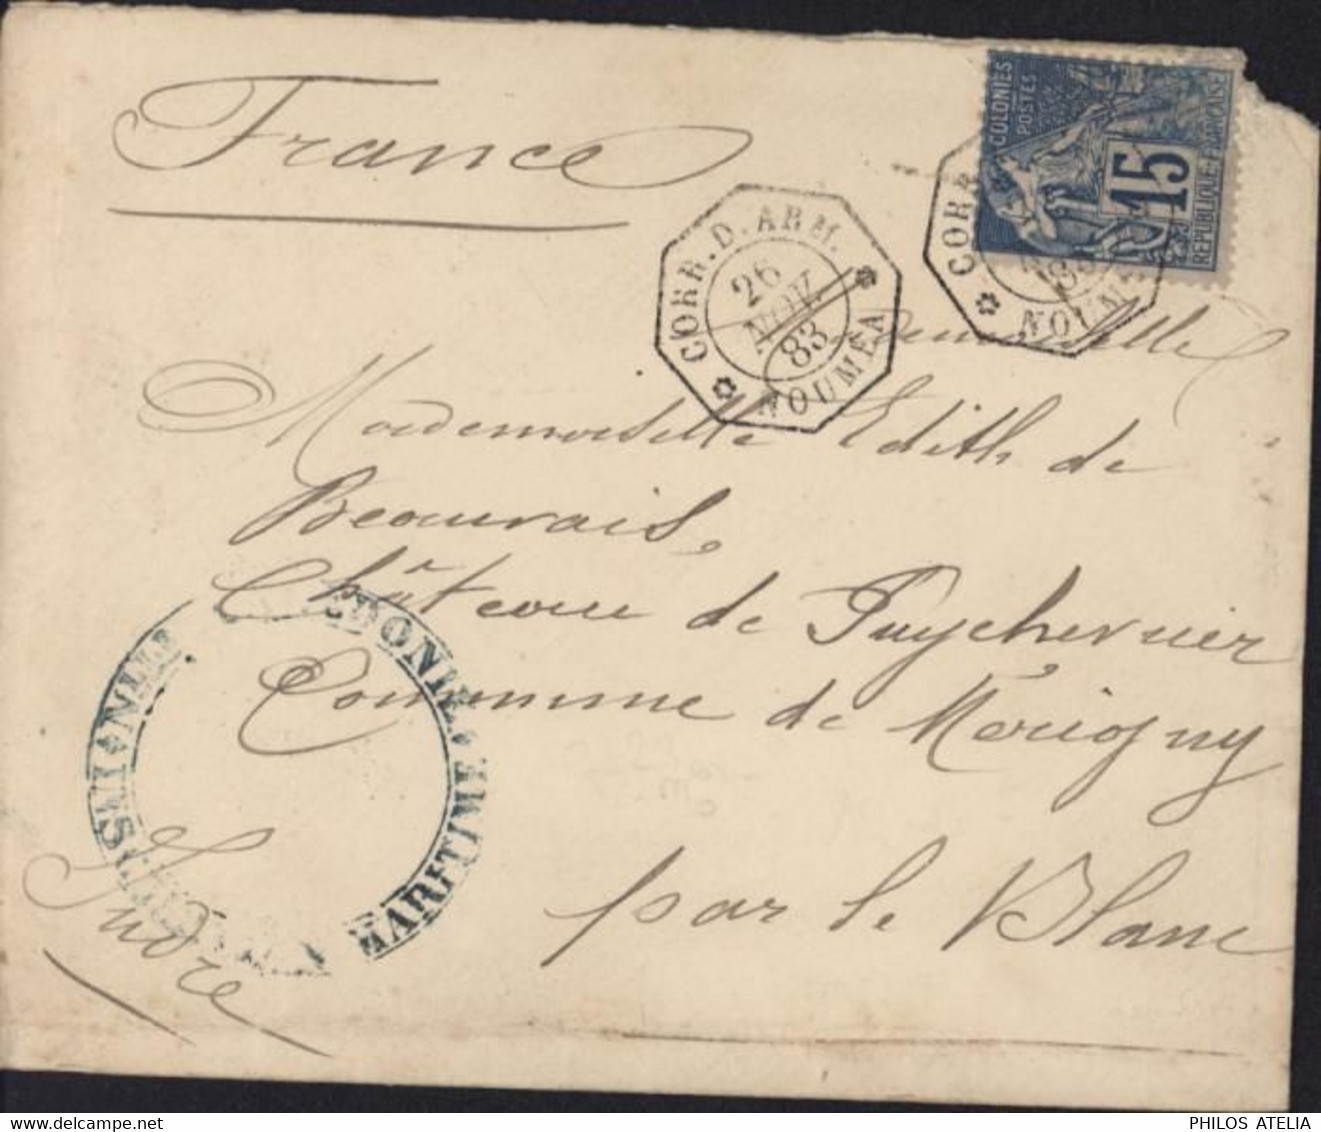 France
COLONIES
POSTES
15
REPUBLIQUE FRANÇAISE
CORR. D. ARM.
26
NOV.
83
NOUMÉA
CORR
NOUM
Mademoiselle Edith de
Beauvais,
Château de Puychevrier
Commune de Mérigny
par le Blanc
Indre
MARITIME
PHILOS ATELIA